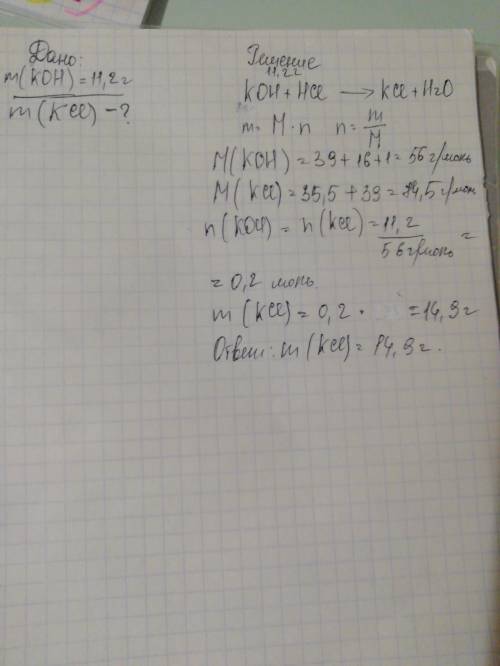 Дано:
m(KOH) = 11,2 г
m(KCl) - ?
Решение
11,2 г
KOH + HCl → KCl + H2O
m = M · n n = m/M
M(KOH) = 39 + 16 + 1 = 56 г/моль
M(KCl) = 35,5 + 39 = 74,5 г/мол
n(KOH) = n(KCl) = 11,2/56 г/моль =
= 0,2 моль
m(KCl) = 0,2 · = 14,9 г
Ответ: m(KCl) = 14,9 г.